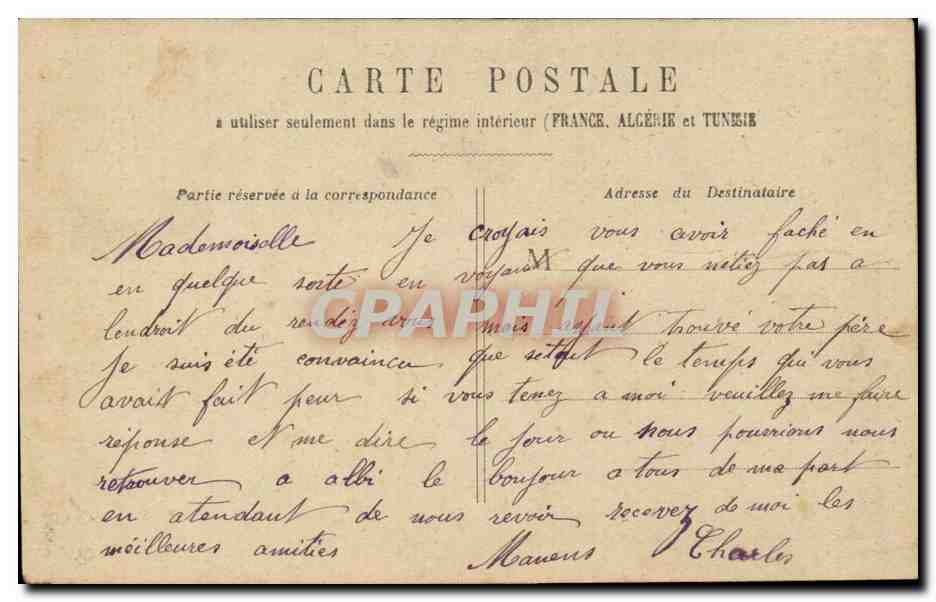 CARTE POSTALE
a utiliser seulement dans le régime intérieur (FRANCE, ALGÉRIE et TUNISIE
Partie réservée à la correspondance
Adresse du Destinataire
Mademoiselle Je croyais vous avoir faché en
en quelque sorte en voyant que vous nétiez pas a
M
lendroit du rendéz vous mois ayant trouvé votre pére
CPAPHIL
Je suis été convaincu que sétait le temps qui vous
avait fait peur si vous tenez a moi veuillez me faire
réponse et me dire le jour ou nous pourrions nous
retrouver a albi le bonjour a tous de ma part
en atendant de nous revoir recevez de moi les
méilleures amitiés Charles